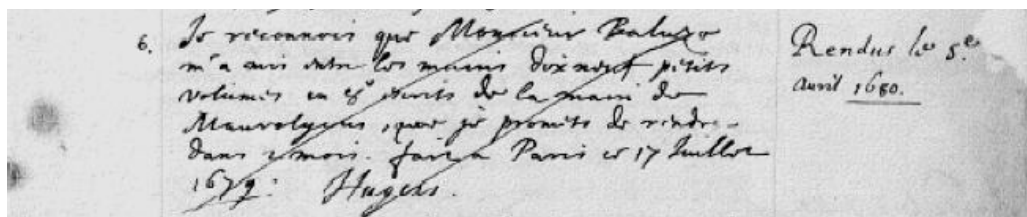 6. Je reconnois que Monsieur Baluze
m'a mis entre les mains dixneuf petits
volumes in 8º escrits de la main de
Maurolycus, que je promets de rendre
dans 2 mois. fait a Paris ce 17 Juillet
1679. Hugens.
Rendus le 5e
Avril 1680.